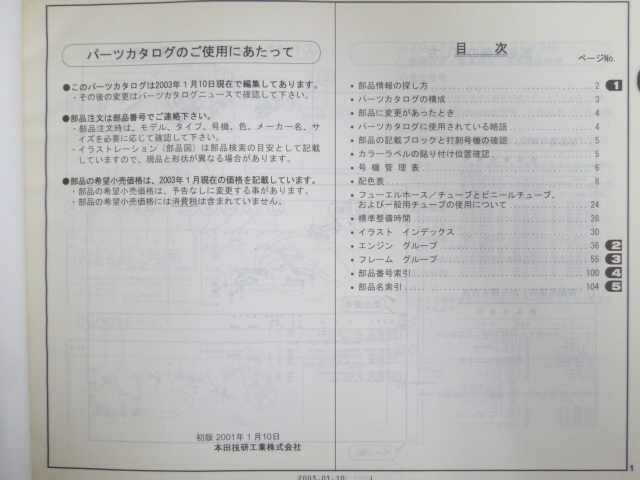 パーツカタログのご使用にあたって
●このパーツカタログは2003年1月10日現在で編集してあります。
・その後の変更はパーツカタログニュースで確認して下さい。
●部品注文は部品番号でご連絡下さい。
・部品注文時は、モデル、タイプ、号機、色、メーカー名、サ
イズを必要に応じて確認して下さい。
・イラストレーション（部品図）は部品検索の目安として記載
していますので、現品と形状が異なる場合があります。
●部品の希望小売価格は、2003年1月現在の価格を記載しています。
・部品の希望小売価格は、予告なしに変更する事があります。
・部品の希望小売価格には消費税は含まれていません。
初版 2001年1月10日
本田技研工業株式会社
目 次
ページNo.
• 部品情報の探し方 2 1
• パーツカタログの構成 3
• 部品に変更があったとき 4
• パーツカタログに使用されている略語 4
• 部品の記載ブロックと打刻号機の確認 5
• カラーラベルの貼り付け位置確認 5
• 号機管理表 6
• 配色表 8
• フューエルホース／チューブとビニールチューブ、
および一般用チューブの使用について 24
• 標準整備時間 28
• イラスト インデックス 30
• エンジン グループ 36 2
• フレーム グループ 55 3
• 部品番号索引 100 4
• 部品名索引 104 5
1
2003.01.10